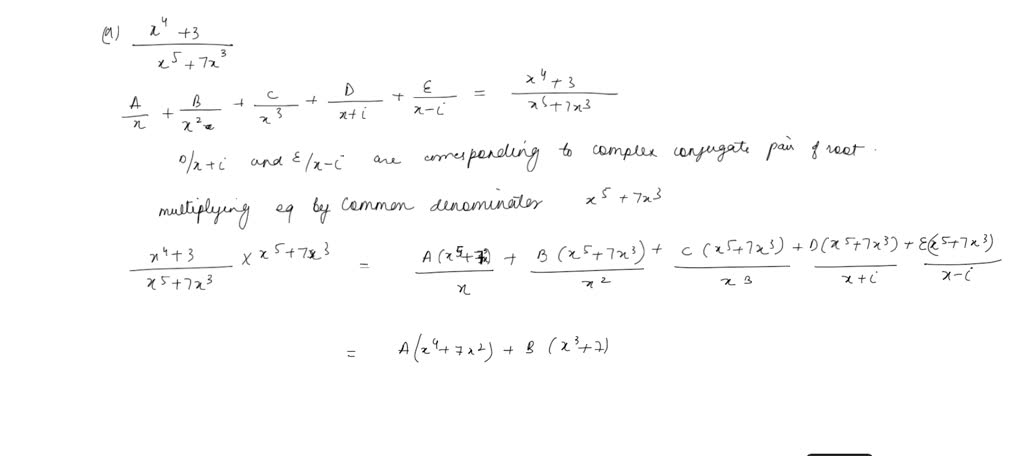 (a) x⁴ + 3 / x⁵ + 7x³
A/x + B/x² + C/x³ + D/x+i + E/x-i = x⁴ + 3 / x⁵ + 7x³
D/x+i and E/x-i are corresponding to complex conjugate pair of root.
multiplying eq by common denominator x⁵ + 7x³
x⁴ + 3 / x⁵ + 7x³ × x⁵ + 7x³ = A(x⁵ + 7x) / x + B(x⁵ + 7x³) / x² + C(x⁵ + 7x³) / x3 + D(x⁵ + 7x³) / x+i + E(x⁵ + 7x³) / x-i
= A(x⁴ + 7x²) + B(x³ + 7)